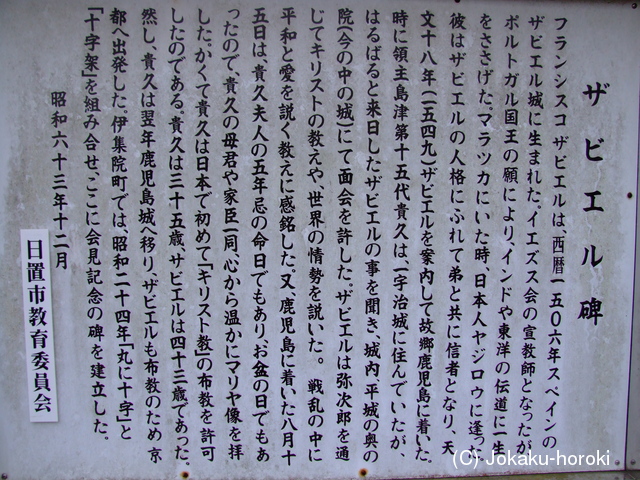 ザビエル碑
フランシスコ ザビエルは、西暦一五〇六年スペインの
ザビエル城に生まれた。イエズス会の宣教師となったが、
ポルトガル国王の願により、インドや東洋の伝道に一生
をささげた。マラッカにいた時、日本人ヤジロウに逢った。
彼はザビエルの人格にふれて弟と共に信者となり、天
文十八年(一五四九)ザビエルを案内して故郷鹿児島に着いた。
時に領主島津第十五代貴久は、一宇治城に住んでいたが、
はるばると来日したザビエルの事を聞き、城内、平城の奥の
院(今の中の城)にて面会を許した。ザビエルは弥次郎を通
じてキリストの教えや、世界の情勢を説いた。 戦乱の中に
平和と愛を説く教えに感銘した。又、鹿児島に着いた八月十
五日は、貴久夫人の五年忌の命日でもあり、お盆の日でもあ
ったので、貴久の母君や家臣一同、心から温かにマリヤ像を拝
した。かくて貴久は日本で初めて「キリスト教」の布教を許可
したのである。貴久は三十五歳、サビエルは四十三歳であった。
然し、貴久は翌年鹿児島城へ移り、ザビエルも布教のため京
都へ出発した。伊集院町では、昭和二十四年「丸に十字」と
「十字架」を組み合せ、ここに会見記念の碑を建立した。
昭和六十三年十二月
日置市教育委員会
(C) Jokaku-horoki